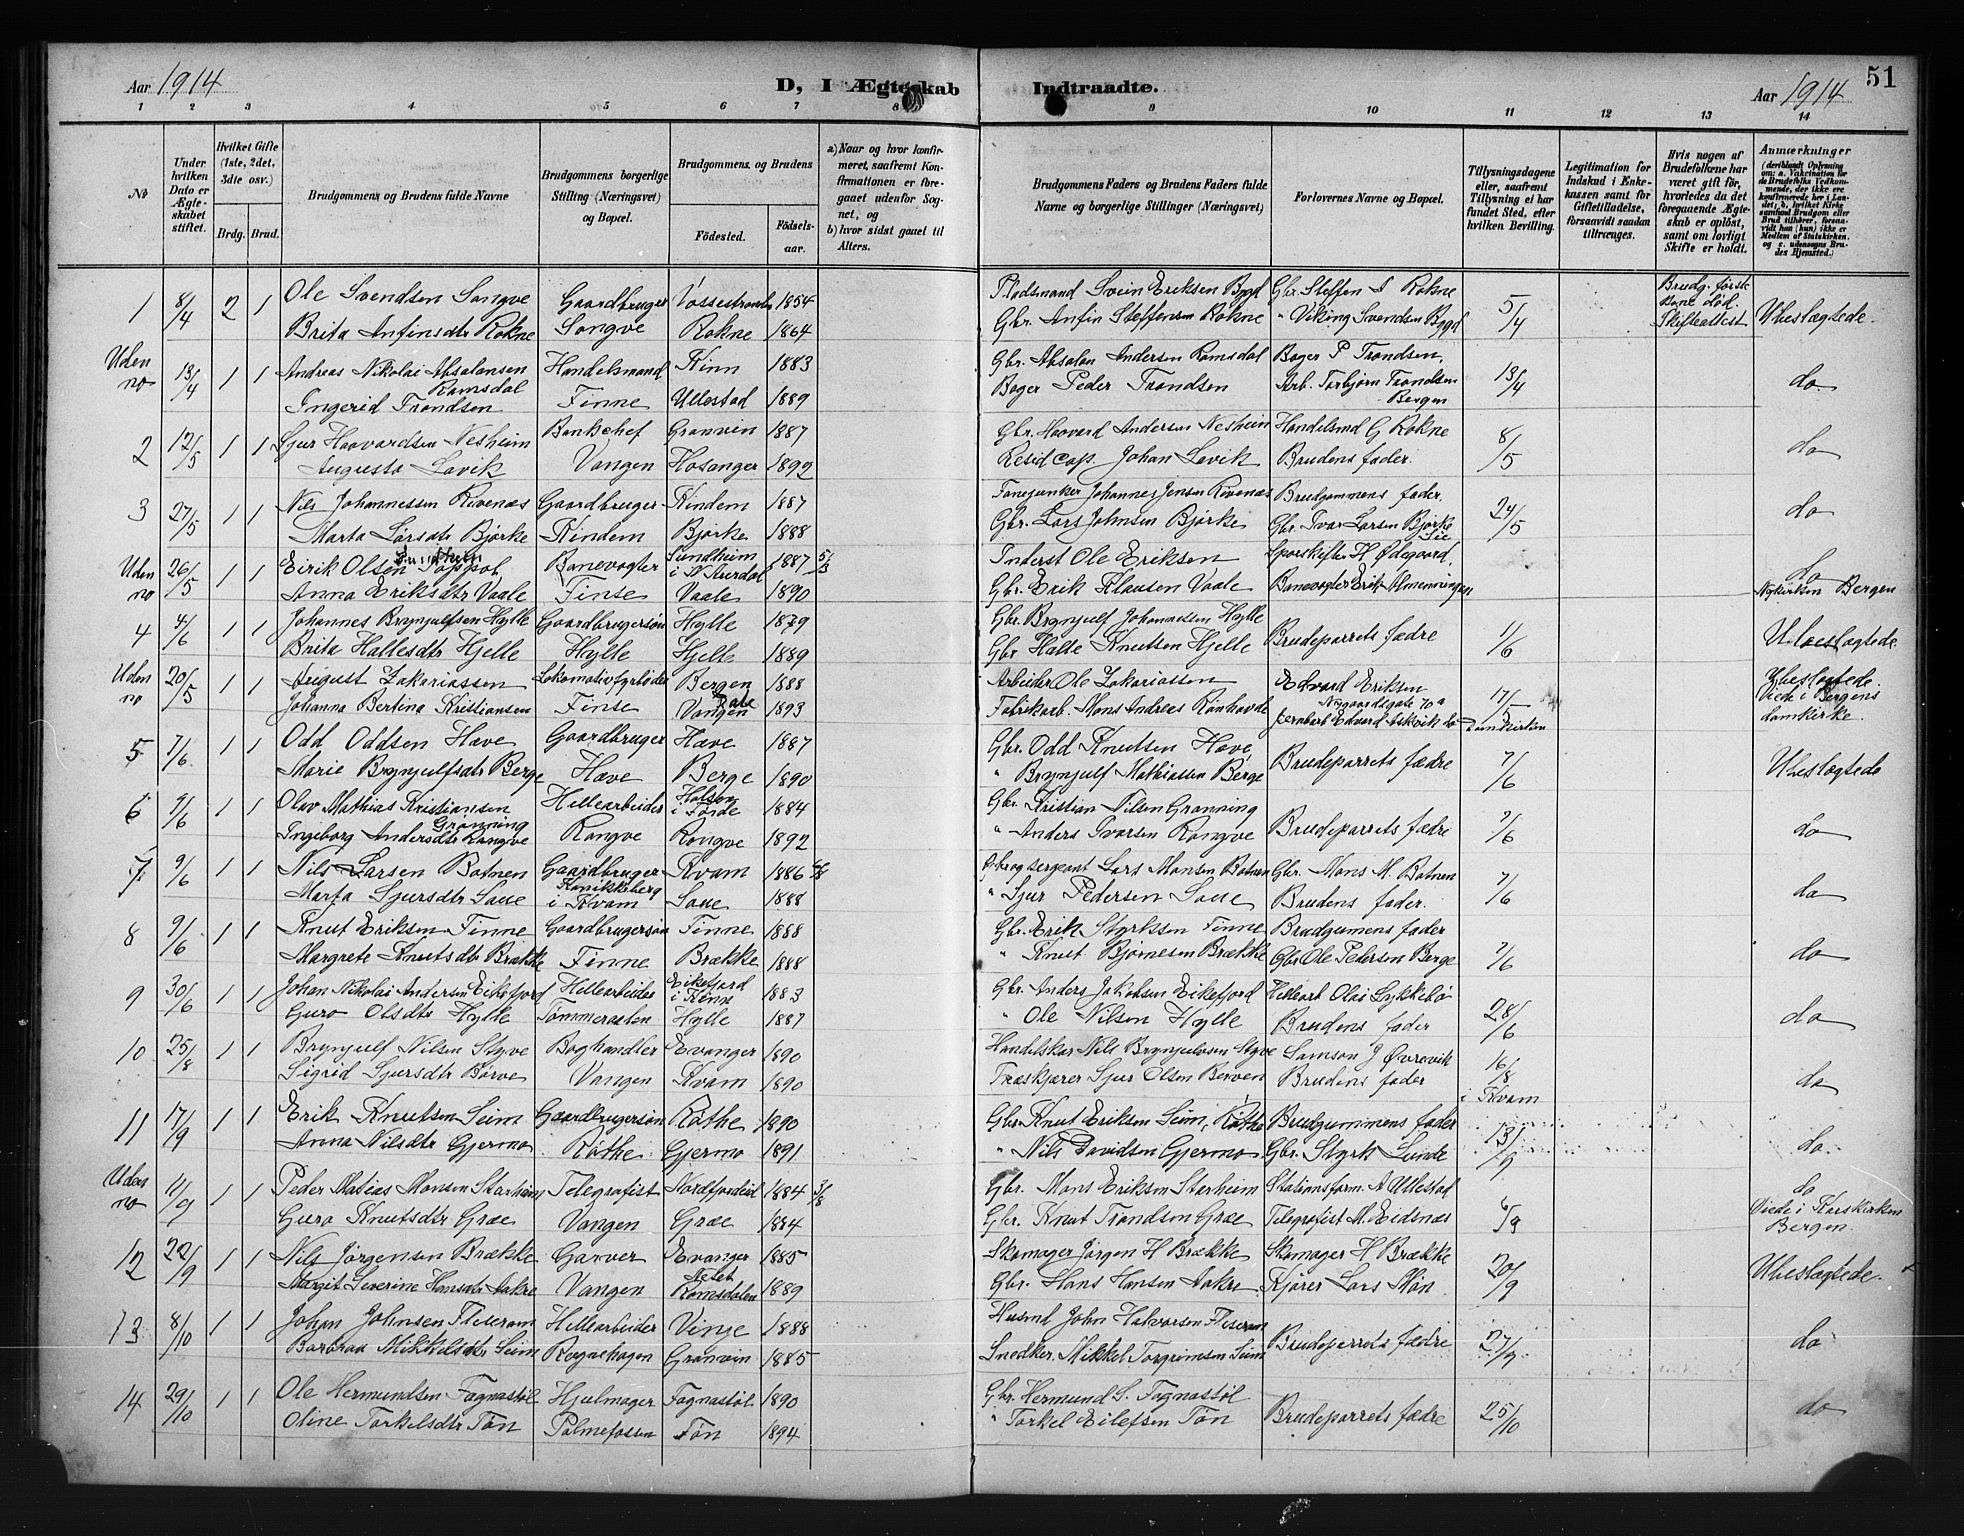 Aar 1914 D, I Ægteskab Indtraadte. Aar 1914 51
1 2 3 4 5 6 7 8 9 10 11 12 13 14
No
Under hvilken Dato er Ægteskabet stiftet.
Hvilket Gifte (1ste, 2det, 3die osv.)
Brdg. Brud.
Brudgommens og Brudens fulde Navne
Brudgommens borgerlige Stilling (Næringsvei) og Bopæl.
Brudgommens og Brudens
Fødested.
Fødselsaar.
a) Naar og hvor konfirmeret, saafremt Konfirmationen er foregaaet udenfor Sognet, og
b) hvor sidst gaaet til Alters.
Brudgommens Faders og Brudens Faders fulde Navne og borgerlige Stillinger (Næringsvei)
Forlovernes Navne og Bopæl.
Tillysningsdagene eller, saafremt Tillysning ei har fundet Sted, efter hvilken Bevilling.
Legitimation for Indskud i Enkekassen samt for Giftetilladelse, forsaavidt saadan tiltrænges.
Hvis nogen af Brudefolkene har været gift før, hvorledes da det foregaaende Ægteskab er opløst, samt om lovligt Skifte er holdt.
Anmærkninger
(deriblandt Oplysning om: a. Vakcination for de Brudefolks Vedkommende, der ikke ere konfirmerede her i Landet; b. hvilket Kirkesamfund Brudgom eller Brud tilhører, forsaavidt han (hun) ikke er Medlem af Statskirken, og c. udensogns Brudes Hjemsted.)
1 8/4 2 1 Ole Svendsen Songve Gaardbruger Vossestranden 1854 Pladsmand Svein Eriksen Bygd Gbr. Steffen S Rokne 5/4 Brudg. første Kone død. Skifteattest Ubeslægtede.
Brita Anfinsdtr Rokne Songve Rokne 1864 Gbr. Anfin Steffensen Rokne " Viking Svendsen Bygd
Uden no 13/4 1 1 Andreas Nikolai Absalonsen Ramsdal Handelsmand Kinn 1883 Gbr. Absalon Andersen Ramsdal Bager P Trondsen, 13/4 do
Ingerid Trondsen Finne Ullestad 1889 Bager Peder Trondsen Arb. Torbjørn Trondsen Bergen
2 12/5 1 1 Sjur Haavardsen Nesheim Bankchef Granvin 1887 Gbr. Haavard Andersen Nesheim Handelsmd G Rokne 8/5 do
Augusta Lavik Vangen Hosanger 1892 Resid cap. Johan Lavik Brudens fader.
3 27/5 1 1 Nils Johannessen Rivenæs Gaardbruger Kindem 1887 Fanejunker Johannes Jensen Rivenæs Brudgommens fader. 24/5 do
Marta Larsdtr Bjørke Kindem Bjørke 1888 Gbr. Lars Johnsen Bjørke Gbr. Ivar Larsen Bjørke
Uden no 26/5 1 1 Eirik Olsen Sundheim Banevogter Sundheim i N. Aurdal 1887 5/3 Inderst Ole Eriksen Sporskifter H. Ødegaard, do
Anna Eriksdtr Vaale Finse Vaale 1890 Gbr. Erik Klausen Vaale Banevogter Erik Almenningen Nykirken Bergen
4 4/6 1 1 Johannes Brynjulfsen Hylle Gaardbrugersøn Hylle 1879 Gbr. Brynjulf Johannessen Hylle Brudeparrets fædre 1/6 Ubeslægtede
Brita Haldesdtr Hjelle Hylle Hjelle 1889 Gbr Halle Knutsen Hjelle
Uden no 20/5 1 1 August Zakariassen Lokomotivfyrbøder Bergen 1888 Arbeider Ole Zakariassen Edvard Eriksen Nygaardsgate 70a 17/5 Ubeslægtede. Viede i Bergens domkirke.
Johanna Bertina Kristiansen Finse Vangen 1893 Fabrikarb. Mons Andreas Rønhovde Jernbarb Edvard Askvik do Domkirken
5 7/6 1 1 Odd Oddsen Hæve Gaardbruger Hæve 1887 Gbr. Odd Knutsen Hæve Brudeparrets fædre 7/6 Ubeslægtede
Marie Brynjulfsdtr Berge Hæve Berge 1890 " Brynjulf Mathiassen Berge
6 9/6 1 1 Olav Mathias Kristiansen Grønning Hellearbeider Holsen i Førde 1884 Gbr. Kristian Nilsen Grønning Brudeparrets fædre 7/6 do
Ingeborg Andersdtr Rongve Rongve Rongve 1892 " Anders Ivarsen Rongve
7 9/6 1 1 Nils Larsen Botnen Gaardbruger Kvam 1886 Gbr og sergeant Lars Monsen Botnen Gbr. Mons M. Botnen 7/6 do
Marta Sjursdtr Saue i Kvam Saue 1888 " Sjur Pedersen Saue Brudens fader.
8 9/6 1 1 Knut Eriksen Finne Gaardbrugersøn Finne 1888 Gbr. Erik Styrksen Finne Brudgumens fader 7/6 do
Margrete Knutsdtr Brække Finne Brække 1888 " Knut Bjørnesen Brække Gbr Ole Pedersen Berge
9 30/6 1 1 Johan Nikolai Andersen Eikefjord Hellearbeider Eikefjord i Kinn 1883 Gbr. Anders Jakobsen Eikefjord Hellearb Olai Lykkebø 28/6 do
Guro Olsdtr Hylle Tømmeraasen Hylle 1887 " Ole Nilsen Hylle Brudens fader
10 25/8 1 1 Brynjulf Nilsen Styve Boghandler Evanger 1890 Handelskar Nils Brynjulvsen Styve Samson J Øvrevik 16/8 i Kvam do
Sigrid Sjursdtr Børve Vangen Kvam 1890 Træskjærer Sjur Olsen Berven Brudens fader
11 17/9 1 1 Erik Knutsen Seim Gaardbrugersøn Røthe 1890 Gbr Knut Eriksen Seim, Røthe Brudgummens fader 13/9 do
Anna Nilsdtr Gjermo Røthe Gjermo 1891 " Nils Davidsen Gjermo Gbr. Styrk Lunde
Uden no 11/9 1 1 Peder Matias Monsen Starheim Telegrafist Nordfjordeid 1884 3/8 Gbr. Mons Eriksen Starheim Stationsform. A Ullestad 6/9 do
Guro Knutsdtr Græe Vangen Græe 1884 Gbr. Knut Trondsen Græe Telegrafist M. Eidsnæs Viede i Korskirken Bergen.
12 22/9 1 1 Nils Jørgensen Brække Garver Evanger 1885 Skomager Jørgen H Brække Skomager H Brække 20/9 Ubeslægtede.
Margit Severine Hansdtr Aakre Vangen Neset Romsdalen 1889 Gbr. Hans Hansen Aakre Kjører Lars Møn
13 8/10 1 1 Johan Johnsen Fleseram Hellearbeider Vinje 1888 Husmd John Halvorsen Fleseram Brudeparrets fædre 27/9 do
Barbraa Mikkelsdtr Seim Rognehagen Granvin 1885 Snedker. Mikkel Torgrimsen Seim
14 29/10 1 1 Ole Hermundsen Fagnastøl Hjulmager Fagnastøl 1890 Gbr. Hermund S. Fagnastøl Brudeparrets fædre 25/10 do
Oline Torkelsdtr Tøn Palmefossen Tøn 1894 " Torkel Eilefsen Tøn